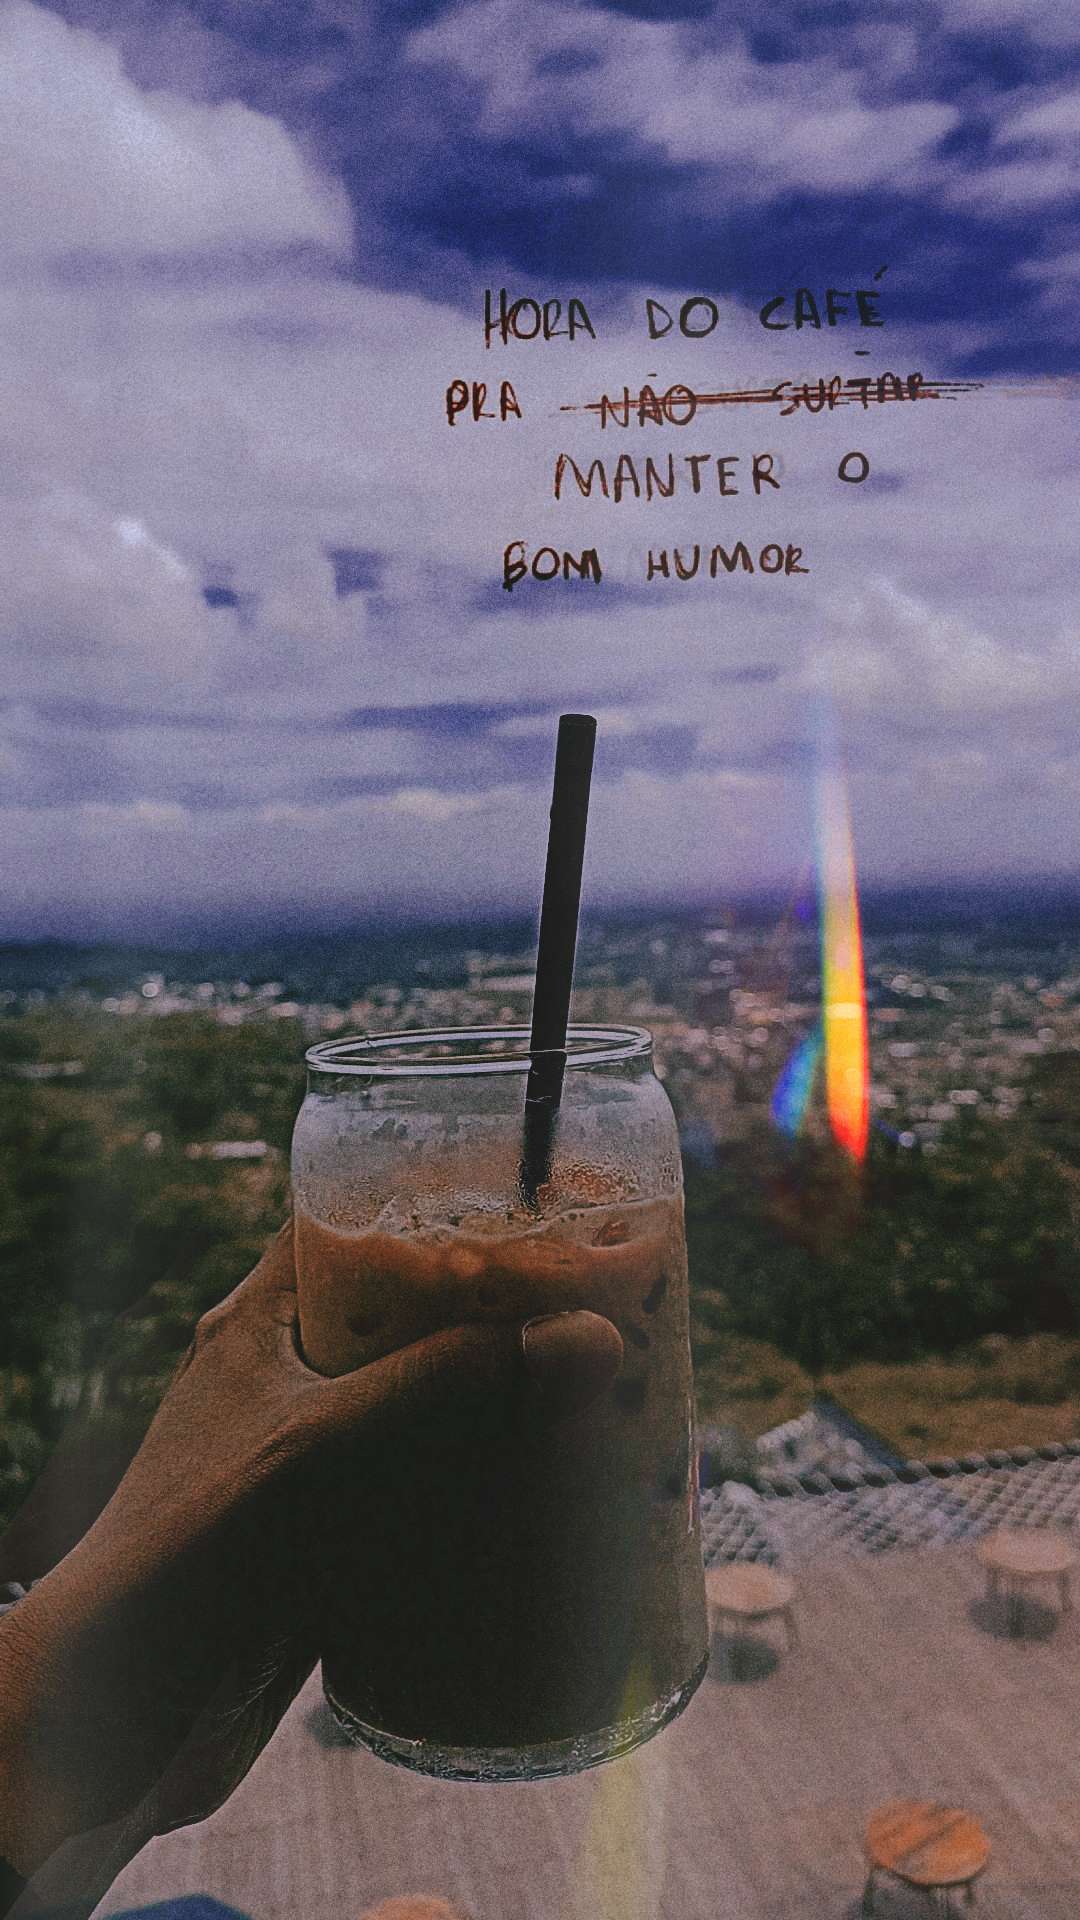 HORA DO CAFÉ
PRA NÃO SURTAR
MANTER O
BOM HUMOR